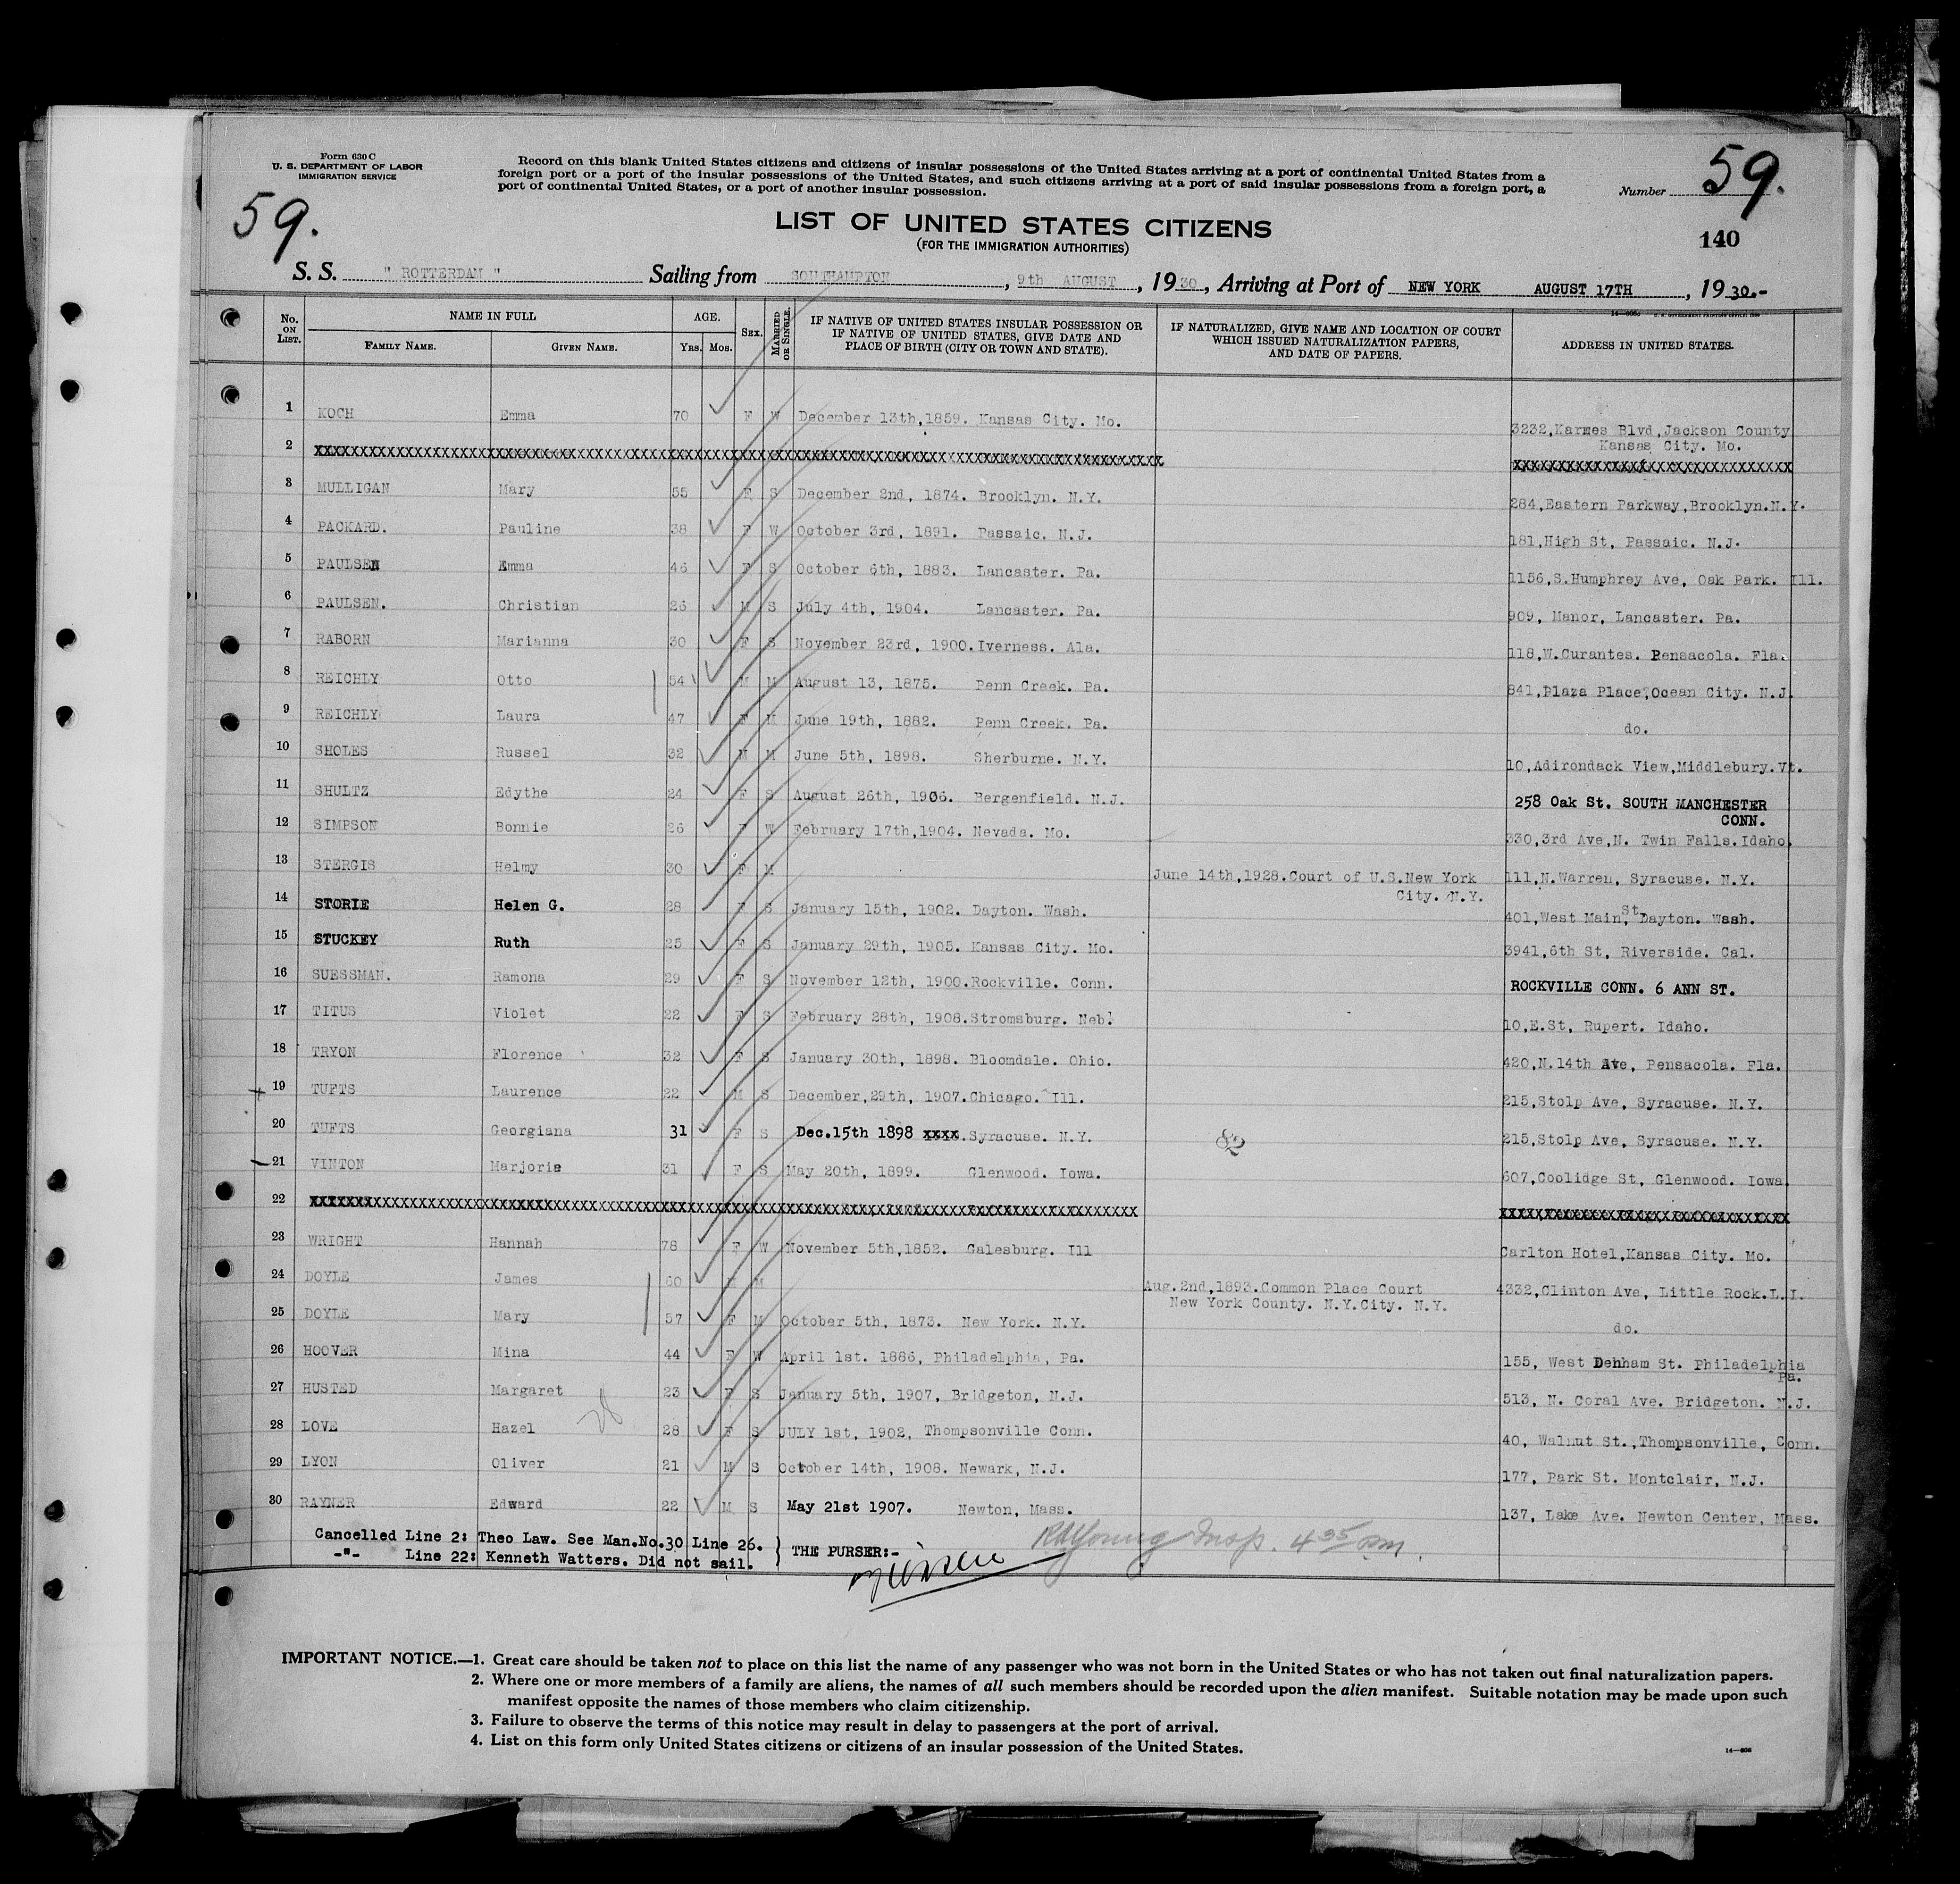 Form 630 C
U. S. DEPARTMENT OF LABOR
IMMIGRATION SERVICE
Record on this blank United States citizens and citizens of insular possessions of the United States arriving at a port of continental United States from a
foreign port or a port of the insular possessions of the United States, and such citizens arriving at a port of said insular possessions from a foreign port, a
port of continental United States, or a port of another insular possession.
Number 59.
59.
LIST OF UNITED STATES CITIZENS
(FOR THE IMMIGRATION AUTHORITIES)
140
S. S. " ROTTERDAM " Sailing from SOUTHAMPTON, 9th AUGUST, 1930, Arriving at Port of NEW YORK AUGUST 17TH, 1930.-
No. ON LIST. NAME IN FULL AGE. SEX. MARRIED OR SINGLE. IF NATIVE OF UNITED STATES INSULAR POSSESSION OR IF NATIVE OF UNITED STATES, GIVE DATE AND PLACE OF BIRTH (CITY OR TOWN AND STATE). IF NATURALIZED, GIVE NAME AND LOCATION OF COURT WHICH ISSUED NATURALIZATION PAPERS, AND DATE OF PAPERS. ADDRESS IN UNITED STATES.
FAMILY NAME. GIVEN NAME. Yrs. Mos.
1 KOCH Emma 70 F W December 13th,1859. Kansas City. Mo. 3232,Karnes Blvd,Jackson County
Kansas City. Mo.
2
3 MULLIGAN Mary 55 F S December 2nd, 1874. Brooklyn. N.Y. 284,Eastern Parkway,Brooklyn.N.Y.
4 PACKARD. Pauline 38 F W October 3rd, 1891. Passaic. N.J. 181,High St, Passaic. N.J.
5 PAULSEN Emma 46 F S October 6th, 1883. Lancaster. Pa. 1156,S.Humphrey Ave, Oak Park. Ill.
6 PAULSEN. Christian 26 M S July 4th, 1904. Lancaster. Pa. 909, Manor, Lancaster. Pa.
7 RABORN Marianna 30 F S November 23rd, 1900.Iverness. Ala. 118,W.Curantes. Pensacola. Fla.
8 REICHLY Otto 54 M M August 13, 1875. Penn Creek. Pa. 841,Plaza Place,Ocean City. N.J.
9 REICHLY Laura 47 F M June 19th, 1882. Penn Creek. Pa. do.
10 SHOLES Russel 32 M M June 5th, 1898. Sherburne. N.Y. 10,Adirondack View,Middlebury.Vt.
11 SHULTZ Edythe 24 F S August 26th, 1906. Bergenfield. N.J. 258 Oak St. SOUTH MANCHESTER
CONN.
12 SIMPSON Bonnie 26 F W February 17th,1904. Nevada. Mo. 330,3rd Ave,N. Twin Falls.Idaho.
13 STERGIS Helmy 30 F M June 14th,1928.Court of U.S.New York City. N.Y. 111,N.Warren, Syracuse. N.Y.
14 STORIE Helen G. 28 F S January 15th, 1902. Dayton. Wash. 401,West Main,St Dayton. Wash.
15 STUCKEY Ruth 25 F S January 29th, 1905. Kansas City. Mo. 3941,6th St, Riverside. Cal.
16 SUESSMAN. Ramona 29 F S November 12th, 1900.Rockville. Conn. ROCKVILLE CONN. 6 ANN ST.
17 TITUS Violet 22 F S February 28th, 1908.Stromsburg. Neb. 10,E.St, Rupert. Idaho.
18 TRYON Florence 32 F S January 30th, 1898. Bloomdale. Ohio. 420,N.14th Ave, Pensacola. Fla.
19 TUFTS Laurence 22 M S December,29th, 1907.Chicago. Ill. 215,Stolp Ave, Syracuse. N.Y.
20 TUFTS Georgiana 31 F S Dec.15th 1898 xxxx.Syracuse. N.Y. 215,Stolp Ave, Syracuse. N.Y.
21 VINTON Marjorie 31 F S May 20th, 1899. Glenwood. Iowa. 607,Coolidge St, Glenwood. Iowa
22
23 WRIGHT Hannah 78 F W November 5th,1852. Galesburg. Ill Carlton Hotel,Kansas City. Mo.
24 DOYLE James 60 M Aug.2nd,1893.Common Place Court New York County. N.Y.City. N.Y. 4332,Clinton Ave, Little Rock.L.I.
25 DOYLE Mary 57 F M October 5th, 1873. New York. N.Y. do.
26 HOOVER Mina 44 F W April 1st. 1886, Philadelphia, Pa. 155, West Denham St. Philadelphia
Pa.
27 HUSTED Margaret 23 F S January 5th, 1907, Bridgeton, N.J. 513, N. Coral Ave. Bridgeton. N.J.
28 LOVE Hazel 28 F S JULY 1st, 1902, Thompsonville Conn. 40, Walnut St.,Thompsonville, Conn.
29 LYON Oliver 21 M S October 14th, 1908. Newark, N.J. 177, Park St. Montclair, N.J.
30 RAYNER Edward 22 M S May 21st 1907. Newton, Mass. 137, Lake Ave. Newton Center, Mass.
Cancelled Line 2: Theo Law. See Man.No.30 Line 26.
-"- Line 22: Kenneth Watters. Did not sail.
THE PURSER:-
RAYoung Insp. 4 35 PM.
IMPORTANT NOTICE.—1. Great care should be taken not to place on this list the name of any passenger who was not born in the United States or who has not taken out final naturalization papers.
2. Where one or more members of a family are aliens, the names of all such members should be recorded upon the alien manifest. Suitable notation may be made upon such
manifest opposite the names of those members who claim citizenship.
3. Failure to observe the terms of this notice may result in delay to passengers at the port of arrival.
4. List on this form only United States citizens or citizens of an insular possession of the United States.